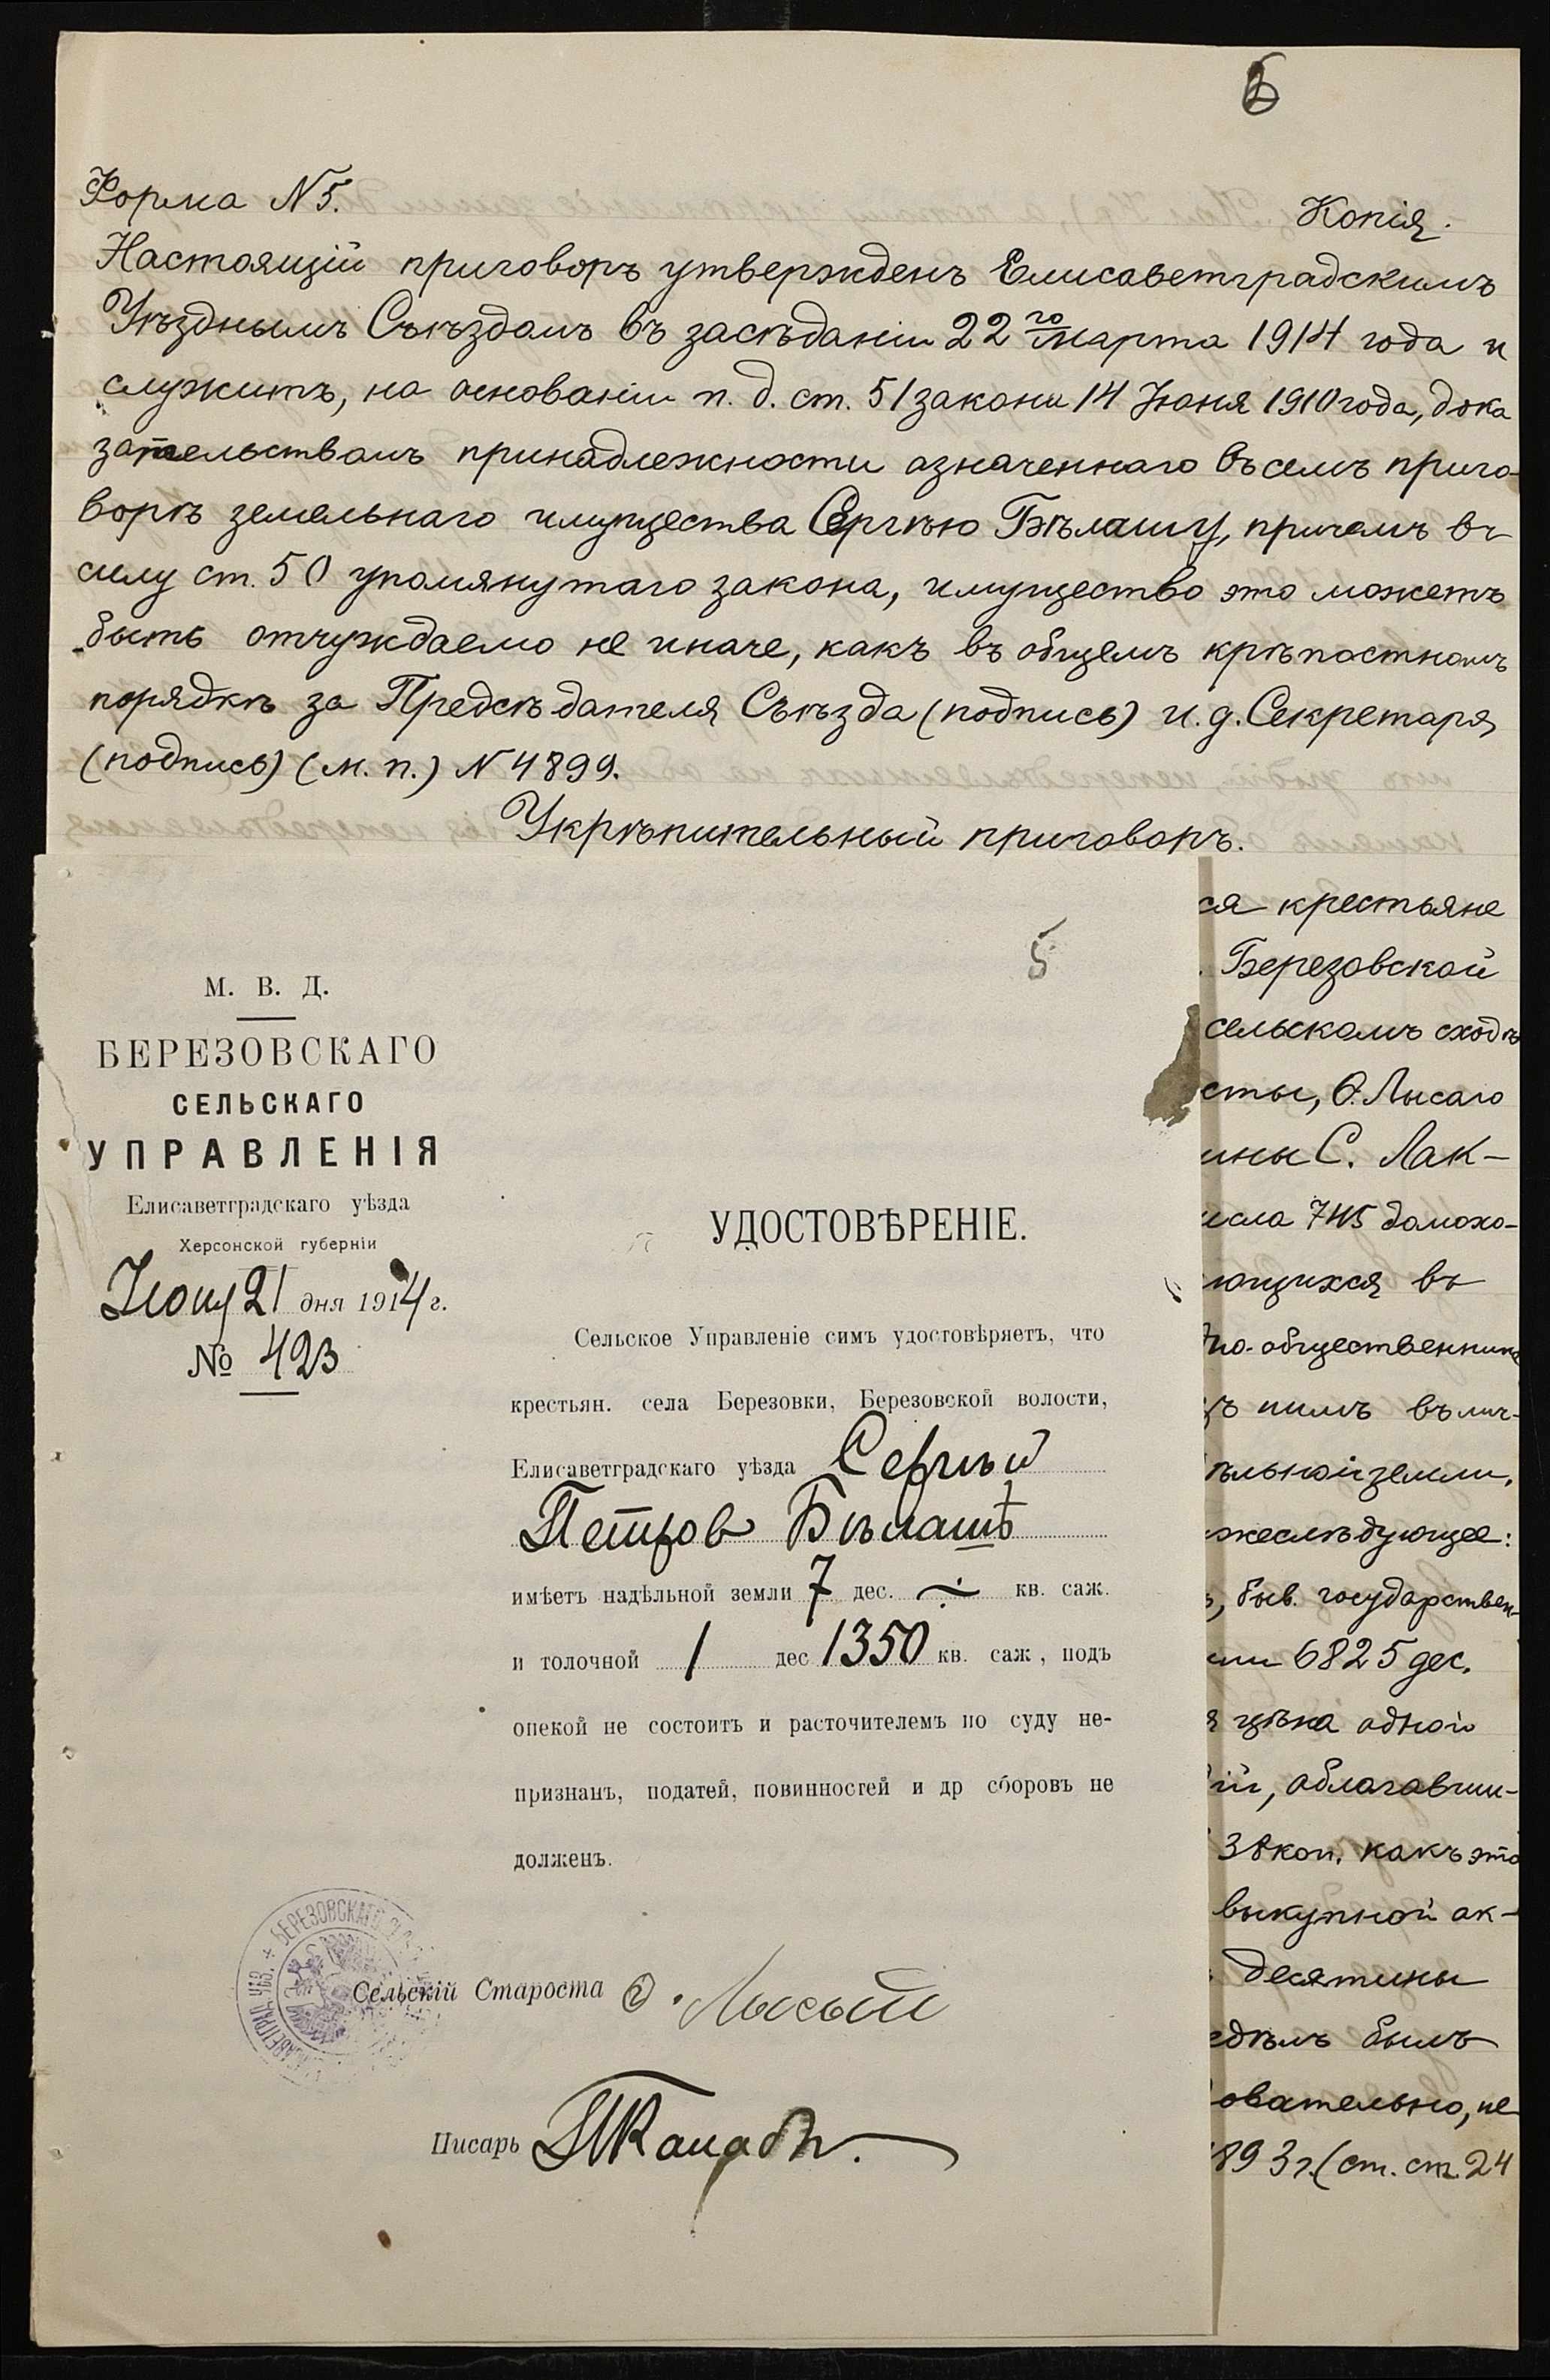 Форма N 5.
Копія.
Настоящій приговоръ утвержденъ Елисаветградскимъ
Уѣзднымъ Съѣздомъ въ засѣданіи 22го марта 1914 года и
служитъ, на основаніи п. д. ст. 51 закона 14 Іюня 1910 года, дока
зательствомъ принадлежности означеннаго въ семъ приго-
ворѣ земельнаго имущества Сергѣю Бѣлашу, причемъ въ
силу ст. 50 упомянутаго закона, имущество это можетъ
быть отчуждаемо не иначе, какъ въ общемъ крѣпостномъ
порядкѣ за Предсѣдателя Съѣзда (подпись) и. д. Секретаря
(подпись) (м. п.) N 4899.
Укрѣпительный приговоръ.
5
М. В. Д.
БЕРЕЗОВСКАГО
СЕЛЬСКАГО
УПРАВЛЕНІЯ
Елисаветградскаго уѣзда
Херсонской губерніи
Іюня 21 дня 1914 г.
№ 423
УДОСТОВѢРЕНІЕ.
Сельское Управленіе симъ удостовѣряетъ, что
крестьян. села Березовки, Березовской волости,
Елисаветградскаго уѣзда Сергѣй
Петров Бѣлашъ
имѣетъ надѣльной земли 7 дес. ÷ кв. саж.
и толочной 1 дес 1350 кв. саж, подъ
опекой не состоитъ и расточителемъ по суду не-
признанъ, податей, повинностей и др сборовъ не
долженъ.
БЕРЕЗОВСКАГО
Сельскій Староста Ѳ. Лысый
Писарь
ся крестьяне
Березовской
сельскомъ сходѣ
сты, Ѳ. Лысаго
ины С. Лак-
исла 745 домохо-
ющихся въ
но-общественника
нимъ въ лич-
ѣльной земли,
жеслѣдующее:
, быв. государствен-
или 6825 дес.
я цѣна одной
ій, облагавши-
38 коп. какъ это
выкупной ак-
десятины
едѣлъ былъ
овательно, не
893 г. (ст. ст. 24